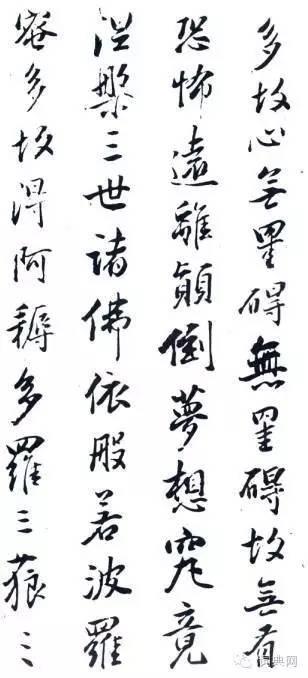 多故心無罣碍無罣碍故無有
恐怖遠離顛倒夢想究竟
涅槃三世諸佛依般若波羅
密多故得阿耨多羅三藐三
词典网